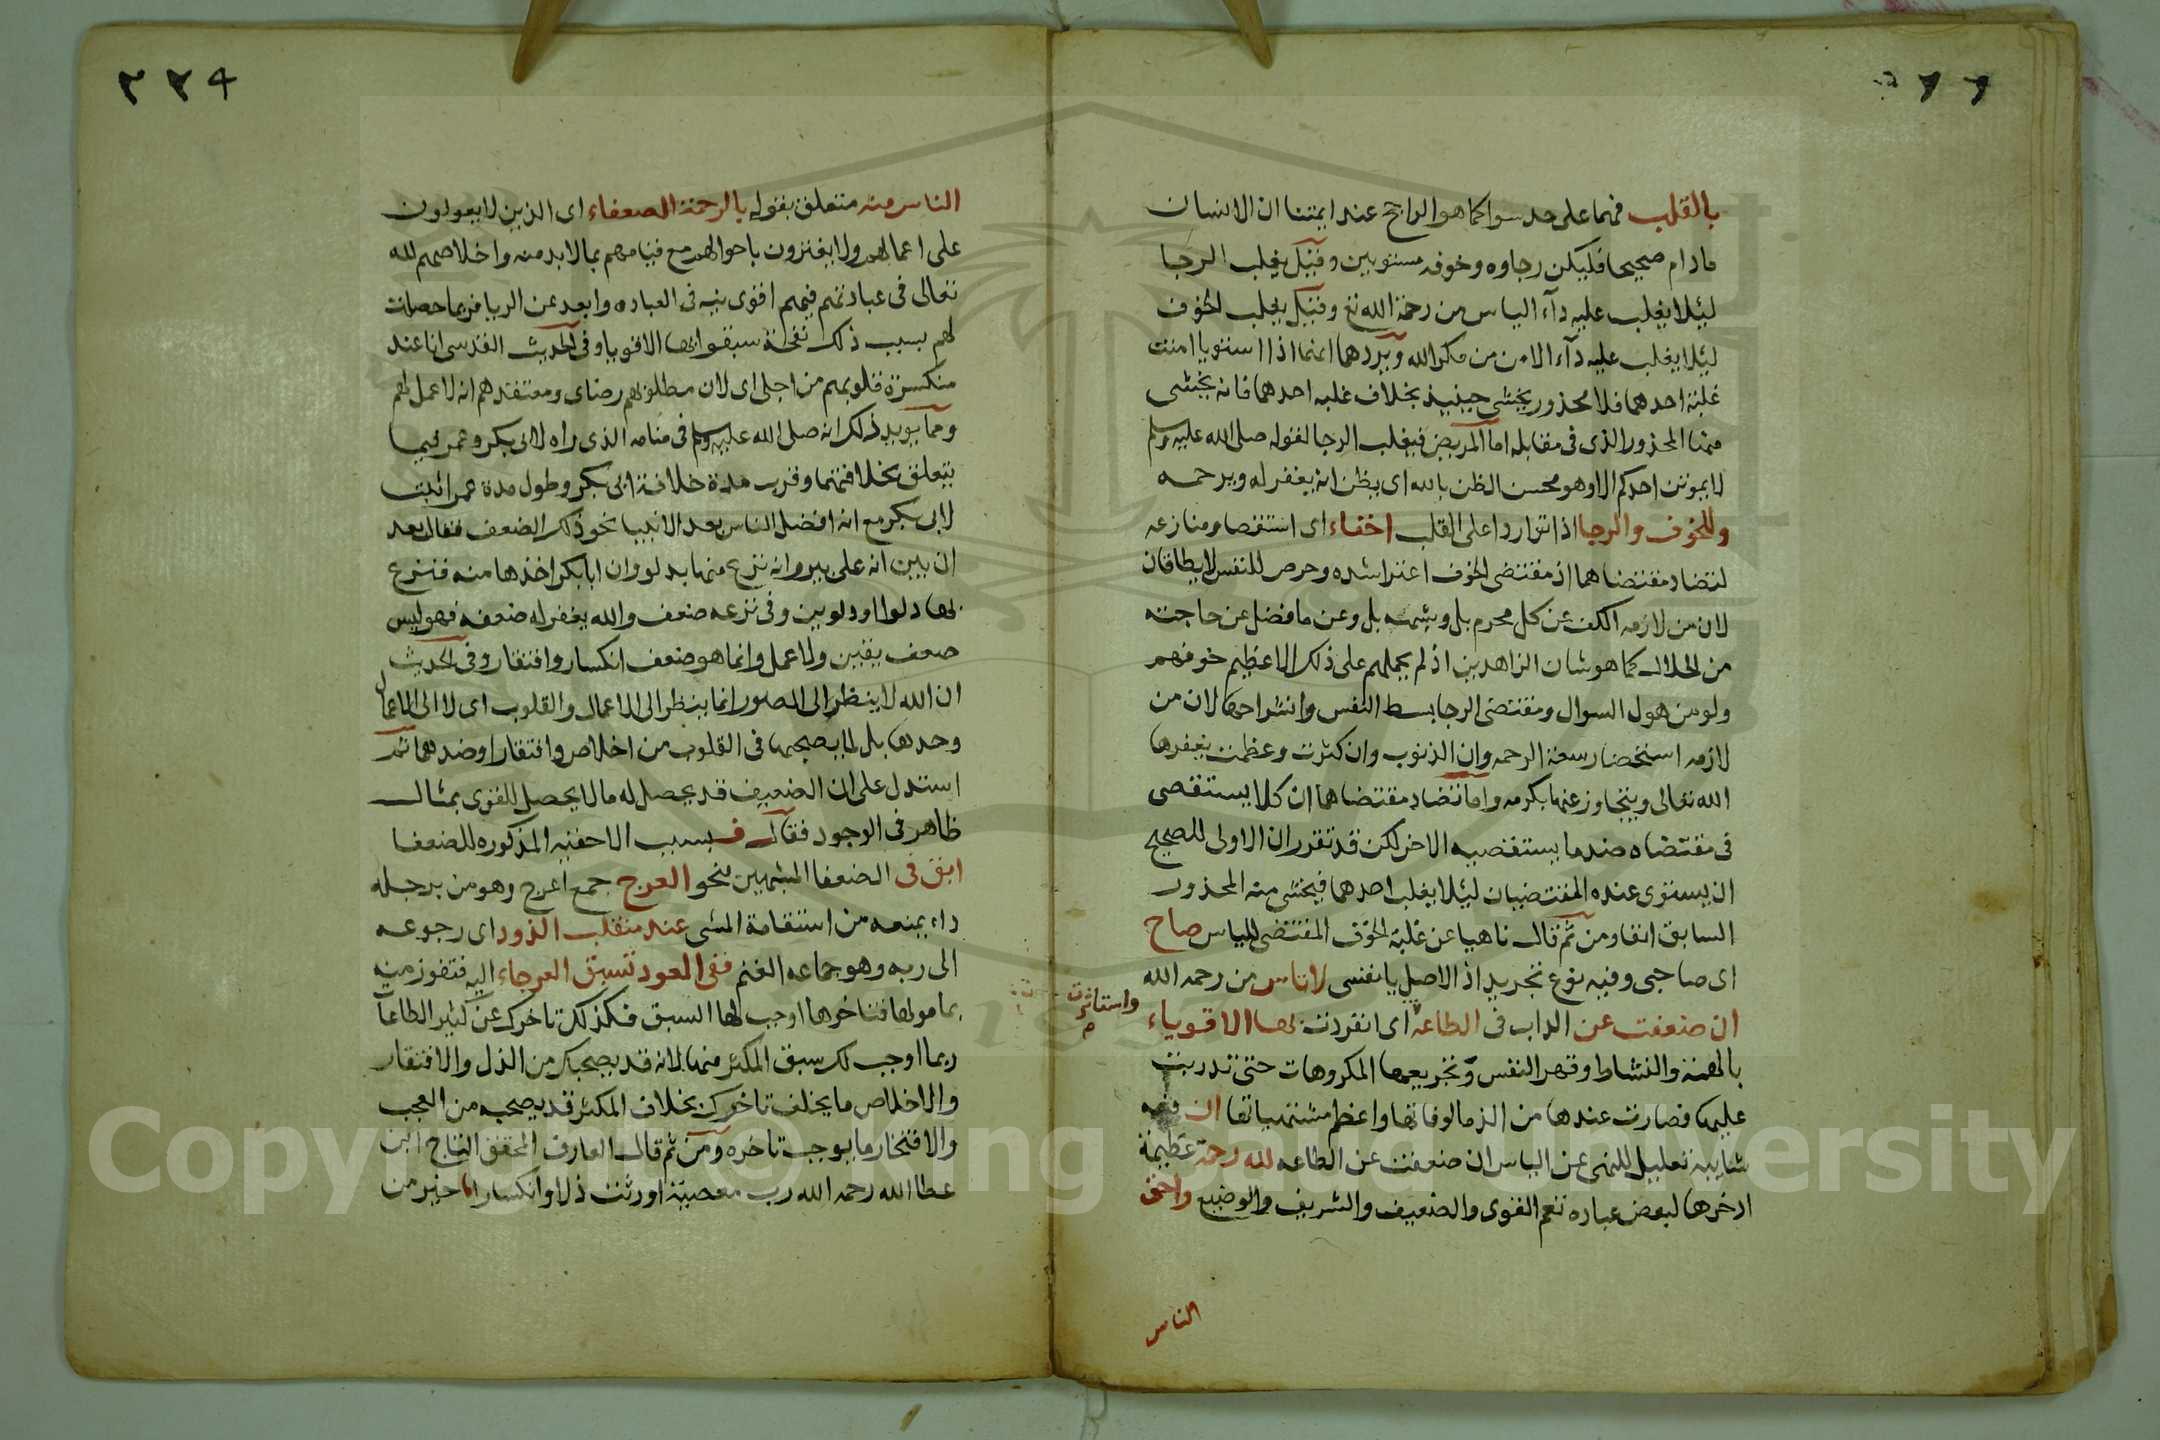 بالقلب فهما على حد سوا كما هو الراجح عند ايمتنا ان الانسان
مادام صحيحا فليكن رجاوه وخوفه مستويين وقيل يغلب الرجا
ليلا يغلب عليه دآء الياس من رحمة الله تع وقيل يغلب الخوف
ليلا يغلب عليه دآء الامن من مكر الله ويردهما انهما اذا استويا امنت
غلبة احدهما فلا محذور يخشى حينيذ بخلاف غلبه احدهما فانه يخشى
منها المحذور الذى فى مقابله اما المريض فيغلب الرجا لقوله صلى الله عليه وسلم
لا يموتن احدكم الا وهو محسن الظن بالله اى يظن انه يغفر له ويرحمه
وللخوف والرجا اذا توارد اعلى القلب احفاء اى استقصا ومنازعه
لتضاد مقتضاهما اذ مقتضى الخوف اعتراشده وحرص للنفس لا يطاقان
لان من لازمه الكف عن كل محرم بل وشبهه بل وعن ما فضل عن حاجته
من الحلال كما هو شان الزاهدين اذ لم يحملهم على ذلك الا عظيم خوفهم
ولو من هول السوال ومقتضى الرجا بسط النفس وانشراحها لان من
لازمه استحضار سعة الرحمه وان الذنوب وان كثرت وعظمت يغفرها
الله تعالى ويتجاوز عنها بكرمه واما تضاد مقتضاها ان كلا يستقصى
فى مقتضاه ضد ما يستقصيه الاخر لكن قد تقرر ان الاولى للصحيح
ان يستوى عنده المقتضيان ليلا يغلب احدهما فيخشى منه المحذور
السابق انفا ومن ثم قال ناهيا عن غلبة الخوف المقتضى للياس صاح
اى صاحبى وفيه نوع تجريد اذ الاصل يا نفسى لا تاس من رحمه الله
ان ضعفت عن الداب فى الطاعة اى انفردت بها الاقوياء
واستاثرت
بالهمة والنشاط وقهر النفس وتجريعها المكروهات حتى تدربت
عليها فصارت عندها من الذ مالوفاتها واعظم مشتهياتها ان
شايبة تعليل للنهى عن الياس ان ضعفت عن الطاعه لله رحمة عظيمة
ادخرها لبعض عباده تعم القوى والضعيف والشريف والوضيع واحق
الناس
٢٢٤
الناس منه متعلق بقوله بالرحمة الضعفاء اى الذين لا يعولون
على اعمالهم ولا يغترون باحوالهم مع قيامهم بما لابد منه واخلاصهم لله
تعالى فى عبادتهم فيهم اقوى نيه فى العباده وابعد عن الريا فربما حصلت
لهم بسبب ذلك نفحة سبقوا بها الاقويا وفى الحديث القدسى انا عند
منكسرة قلوبهم من اجلى اى لان مطلوبهم رضاى ومعتقدهم انه لا عمل لهم
ومما يويد ذلك انه صلى الله عليه وسلم فى منامه الذى راه لابى بكر وعمر فيما
يتعلق بخلافتهما وقرب مدة خلافة ابى بكر وطول مدة عمر اثبت
لابى بكر مع انه افضل الناس بعد الانبيا نحو ذلك الضعف فقال بعد
ان بين انه على بير وانه نزع منها بدلو وان ابا بكر اخذها منه فنزع
بها دلوا او دلوين وفى نزعه ضعف والله يغفر له ضعفه فهو ليس
ضعف يقين ولا عمل وانما هو ضعف انكسار وافتقار وفى الحديث
ان الله لا ينظر الى الصور انما ينظر الى الاعمال والقلوب اى لا الى الاعمال
وحدها بل لما يصحبها فى القلوب من اخلاص وافتقار او ضدهما ثم
استدل على ان الضعيف قد يحصل له ما لا يحصل للقوى بمثال
ظاهر فى الوجود فقال ف بسبب الاحقيه المذكوره للضعفا
ابق فى الضعفا المشبهين نحو العرج جمع اعرج وهو من برجله
داء يمنعه من استقامة المشى عند منقلب الذود اى رجوعه
الى ربه وهو جماعه الغنم ففى العود تسبق العرجاء اليه فتفوز منه
بمامولها فتاخرها اوجب لها السبق فكذلك تاخرك عن كثير الطاعات
ربما اوجب لك سبق المكثر منها لانه قد يصحبك من الذل والافتقار
والاخلاص ما يخلف تاخرك بخلاف المكثر قد يصحبه من العجب
والافتخار ما يوجب تاخره ومن ثم قال العارف المحقق التاج ابن
عطا الله رحمه الله رب معصية اورثت ذلا وانكسارا خير من